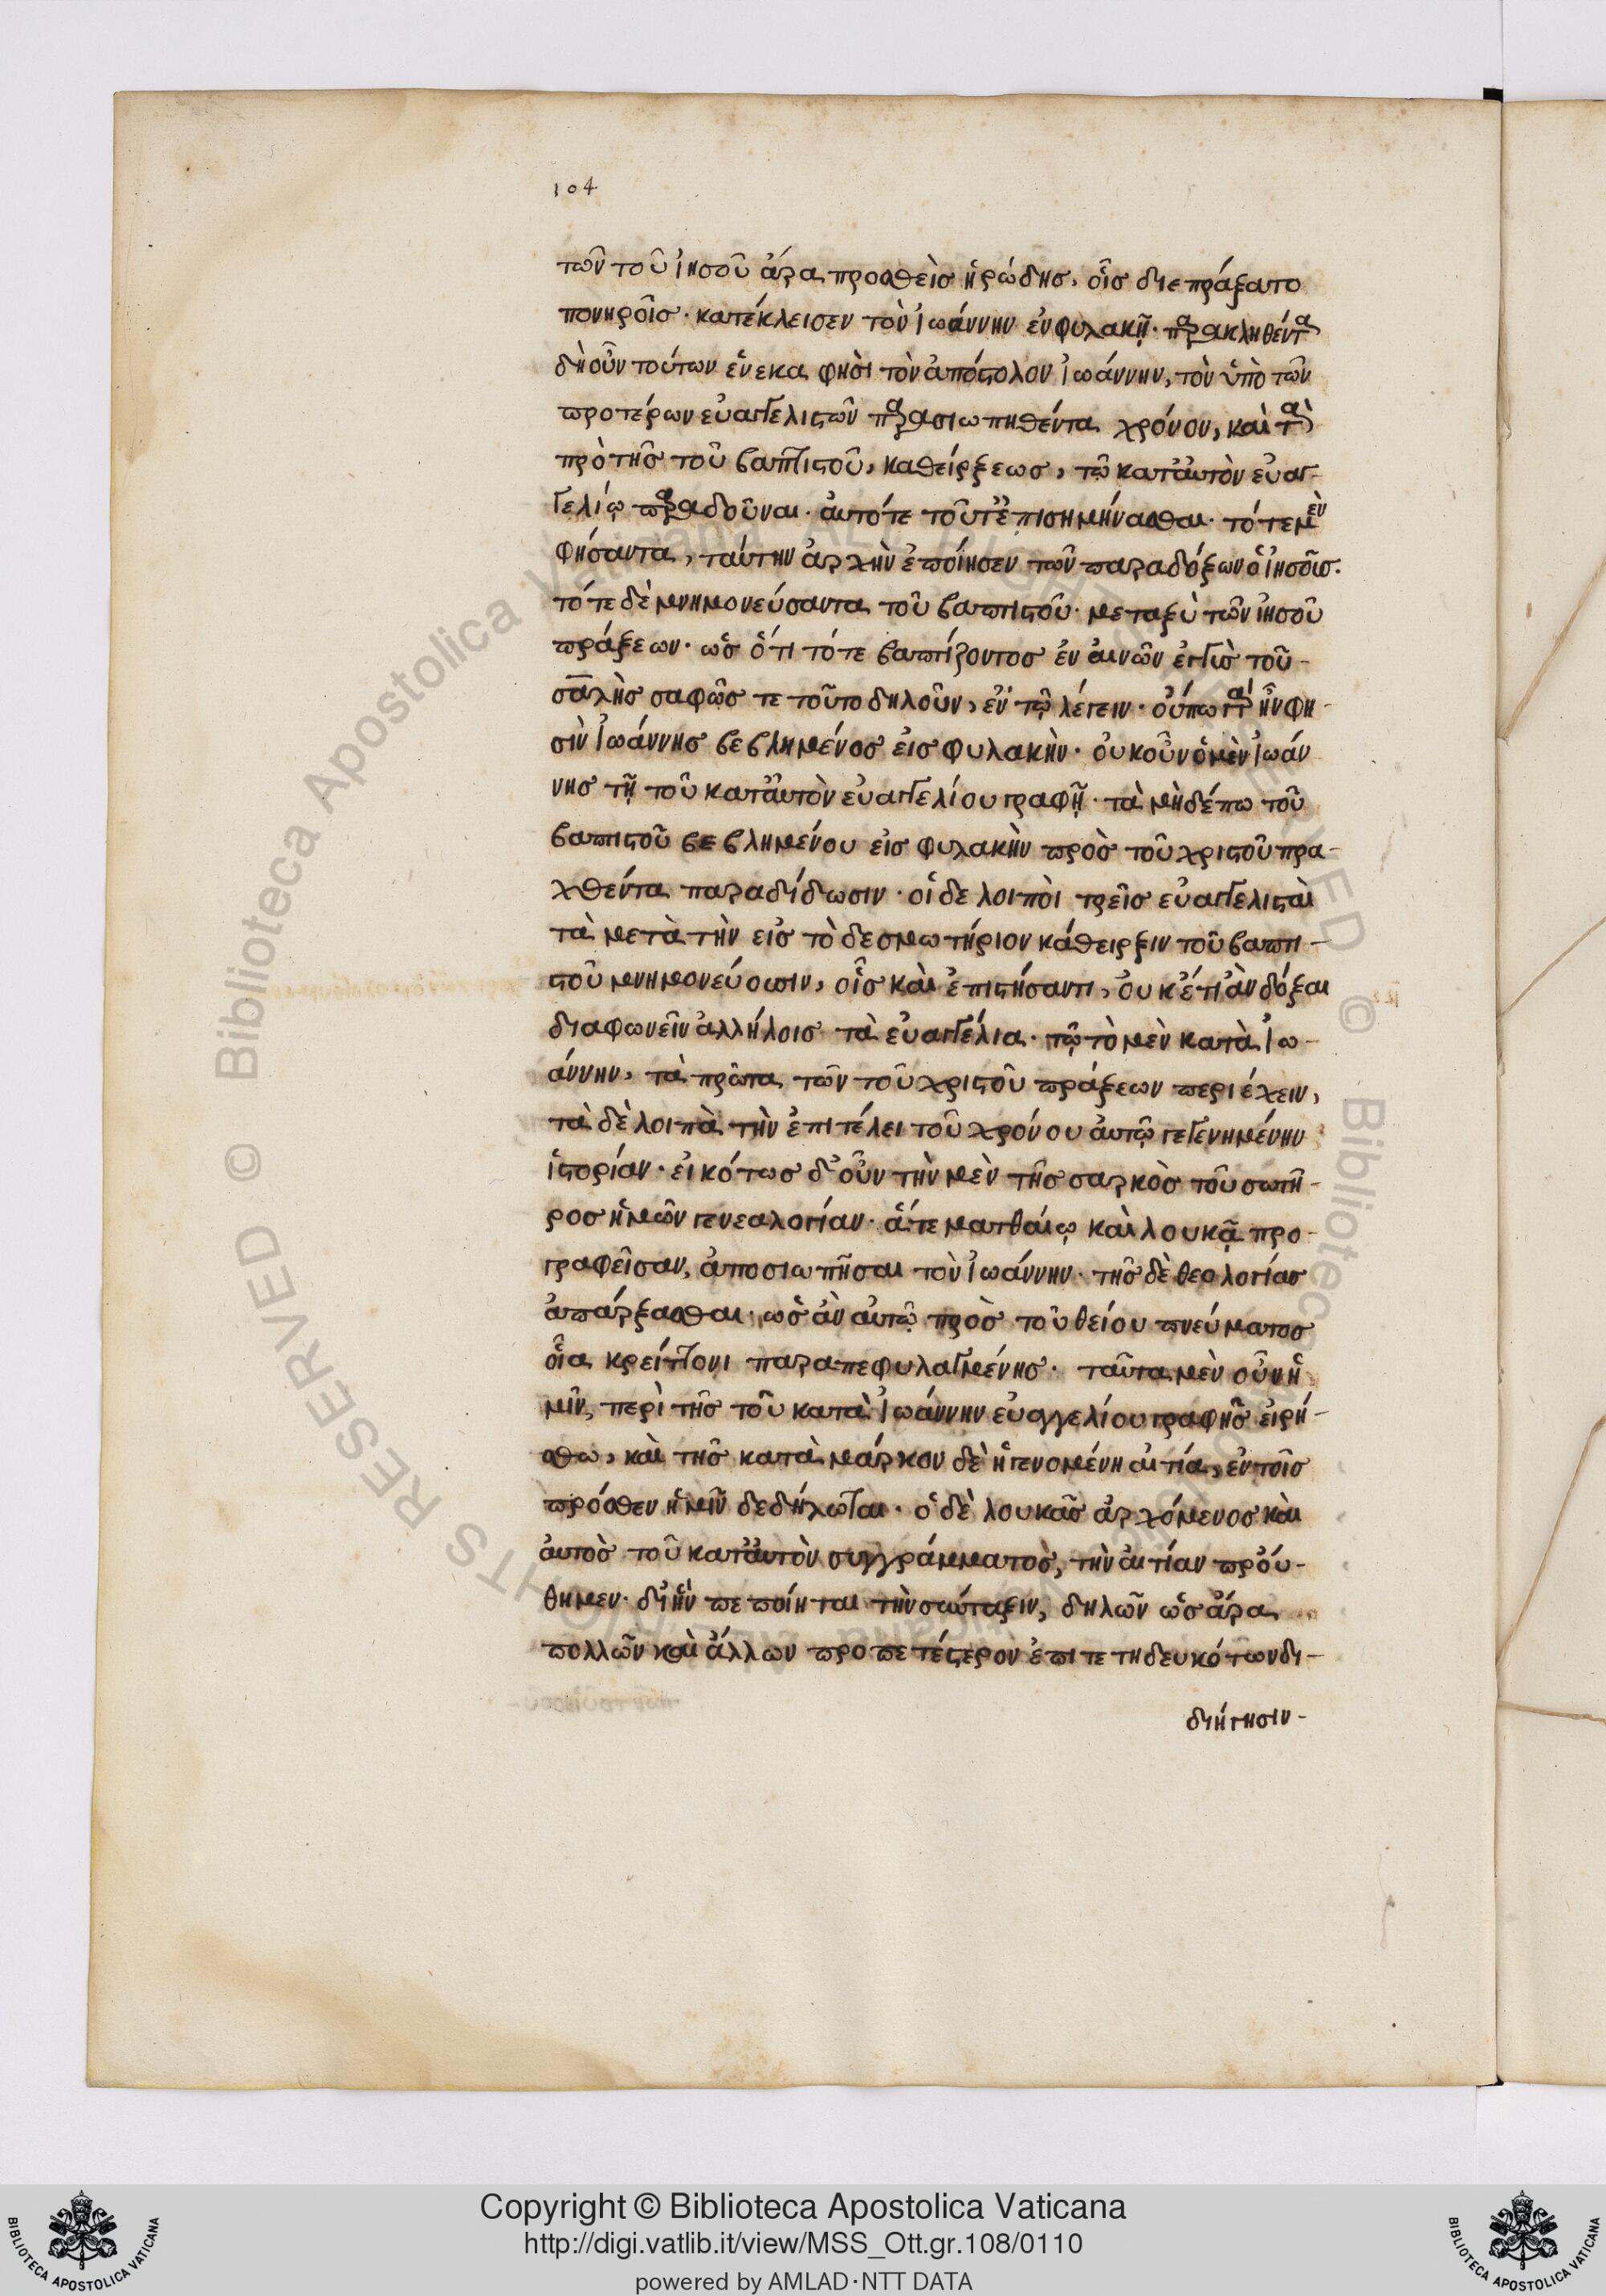 104
τῶν τοῦ ἰησοῦ ἄρα προσθεὶς ἡρώδης, οἷς διεπράξατο
πονηροῖς· κατέκλεισεν τὸν ἰωάννην ἐν φυλακῇ· παρακληθέντα
δὴ οὖν τούτων ἕνεκα φησὶ τὸν ἀπόστολον ἰωάννην, τὸν ὑπὸ τῶν
προτέρων εὐαγγελιστῶν παρασιωπηθέντα χρόνον, καὶ τὰ
πρὸ τῆς τοῦ βαπτιστοῦ, καθείρξεως, τῷ κατ' αὐτὸν εὐαγ-
γελίῳ παραδοῦναι· αὐτό τε τοῦτ' ἐπισημήνασθαι· τότε μὲν
φήσαντα, ταύτην ἀρχὴν ἐποίησεν τῶν παραδόξων ὁ ἰησοῦς.
τότε δὲ μνημονεύσαντα τοῦ βαπτιστοῦ· μεταξὺ τῶν ἰησοῦ
πράξεων· ὡς ὅτι τότε βαπτίζοντος ἐν αἰνῶν ἐγγὺς τοῦ-
σαλὴς σαφῶς τε τοῦτο δηλοῦν, ἐν τῷ λέγειν· οὔπω γὰρ ἦν φη-
σὶν ἰωάννης βεβλημένος εἰς φυλακὴν· οὐκοῦν ὁ μὲν ἰωάν
νης τῇ τοῦ κατ' αὐτὸν εὐαγγελίου γραφῇ· τὰ μὴδέπω τοῦ
βαπτιστοῦ βεβλημένου εἰς φυλακὴν πρὸς τοῦ χριστοῦ πρα-
χθέντα παραδίδωσιν· οἱ δε λοιποὶ τρεῖς εὐαγγελισταὶ
τὰ μετὰ τὴν εἰς τὸ δεσμωτήριον κάθειρξιν τοῦ βαπτι-
στοῦ μνημονεύουσιν, οἷς καὶ ἐπιστήσαντι, οὐκέτι ἂν δόξαι
διαφωνεῖν ἀλλήλοις τὰ εὐαγγέλια· τῷ τὸ μὲν κατὰ ἰω-
άννην, τὰ πρῶτα τῶν τοῦ χριστοῦ πράξεων περιέχειν,
τὰ δὲ λοιπὰ τὴν ἐπὶ τέλει τοῦ χρόνου αὐτῷ γεγενημένην
ἱστορίαν· εἰκότως δ' οὖν τὴν μὲν τῆς σαρκὸς τοῦ σωτῆ-
ρος ἡμῶν γενεαλογίαν· ἅτε ματθαίῳ καὶ λουκᾷ προ-
γραφεῖσαν, ἀποσιωπῆσαι τὸν ἰωάννην· τῆς δὲ θεολογίας
ἀπάρξασθαι· ὡς ἂν αὐτῷ πρὸς τοῦ θείου πνεύματος
οἷα κρείττονι παραπεφυλαγμένης· ταῦτα μὲν οὖν ἡ
μῖν, περὶ τῆς τοῦ κατὰ ἰωάννην εὐαγγελίου γραφῆς εἰρή-
σθω, καὶ τῆς κατὰ μάρκον δὲ ἡ γενομένη αἰτία, ἐν τοῖς
πρόσθεν ἡμῖν δεδήλωται· ὁ δὲ λουκᾶς ἀρχόμενος καὶ
αὐτὸς τοῦ κατ' αὐτὸν συγγράμματος, τὴν αἰτίαν πρού-
θημεν· δι' ἣν πεποίηται τὴν σύνταξιν, δηλῶν ὡς ἄρα
πολλῶν καὶ ἄλλων προπετέστερον ἐπιτετηδευκότων δι-
διήγησιν-
Copyright © Biblioteca Apostolica Vaticana
http://digi.vatlib.it/view/MSS_Ott.gr.108/0110
powered by AMLAD·NTT DATA